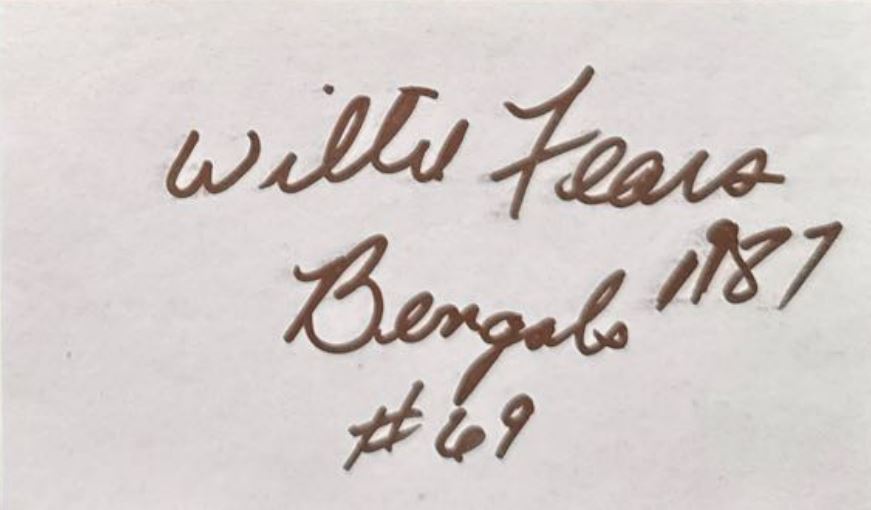 Willie Fears
Bengals 1987
#69